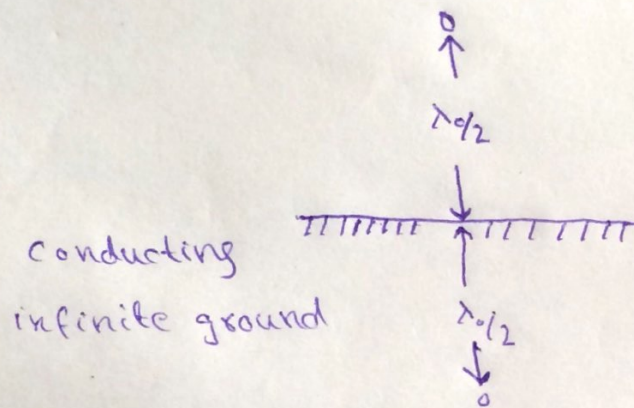 λ₀/2
conducting
infinite ground
λ₀/2